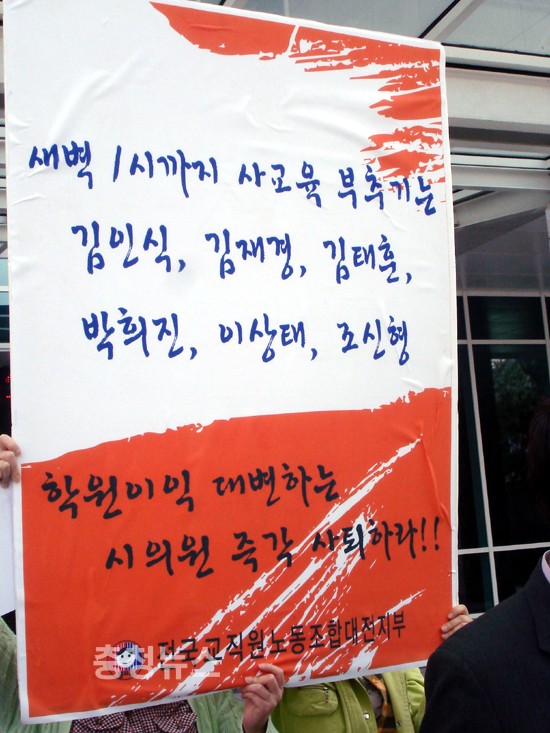 새벽 1시까지 사교육 부추기는
김인식, 김재경, 김태훈,
박희진, 이상태, 조신형
학원이익 대변하는
시의원 즉각 사퇴하라!!
전국교직원노동조합대전지부
충청뉴스